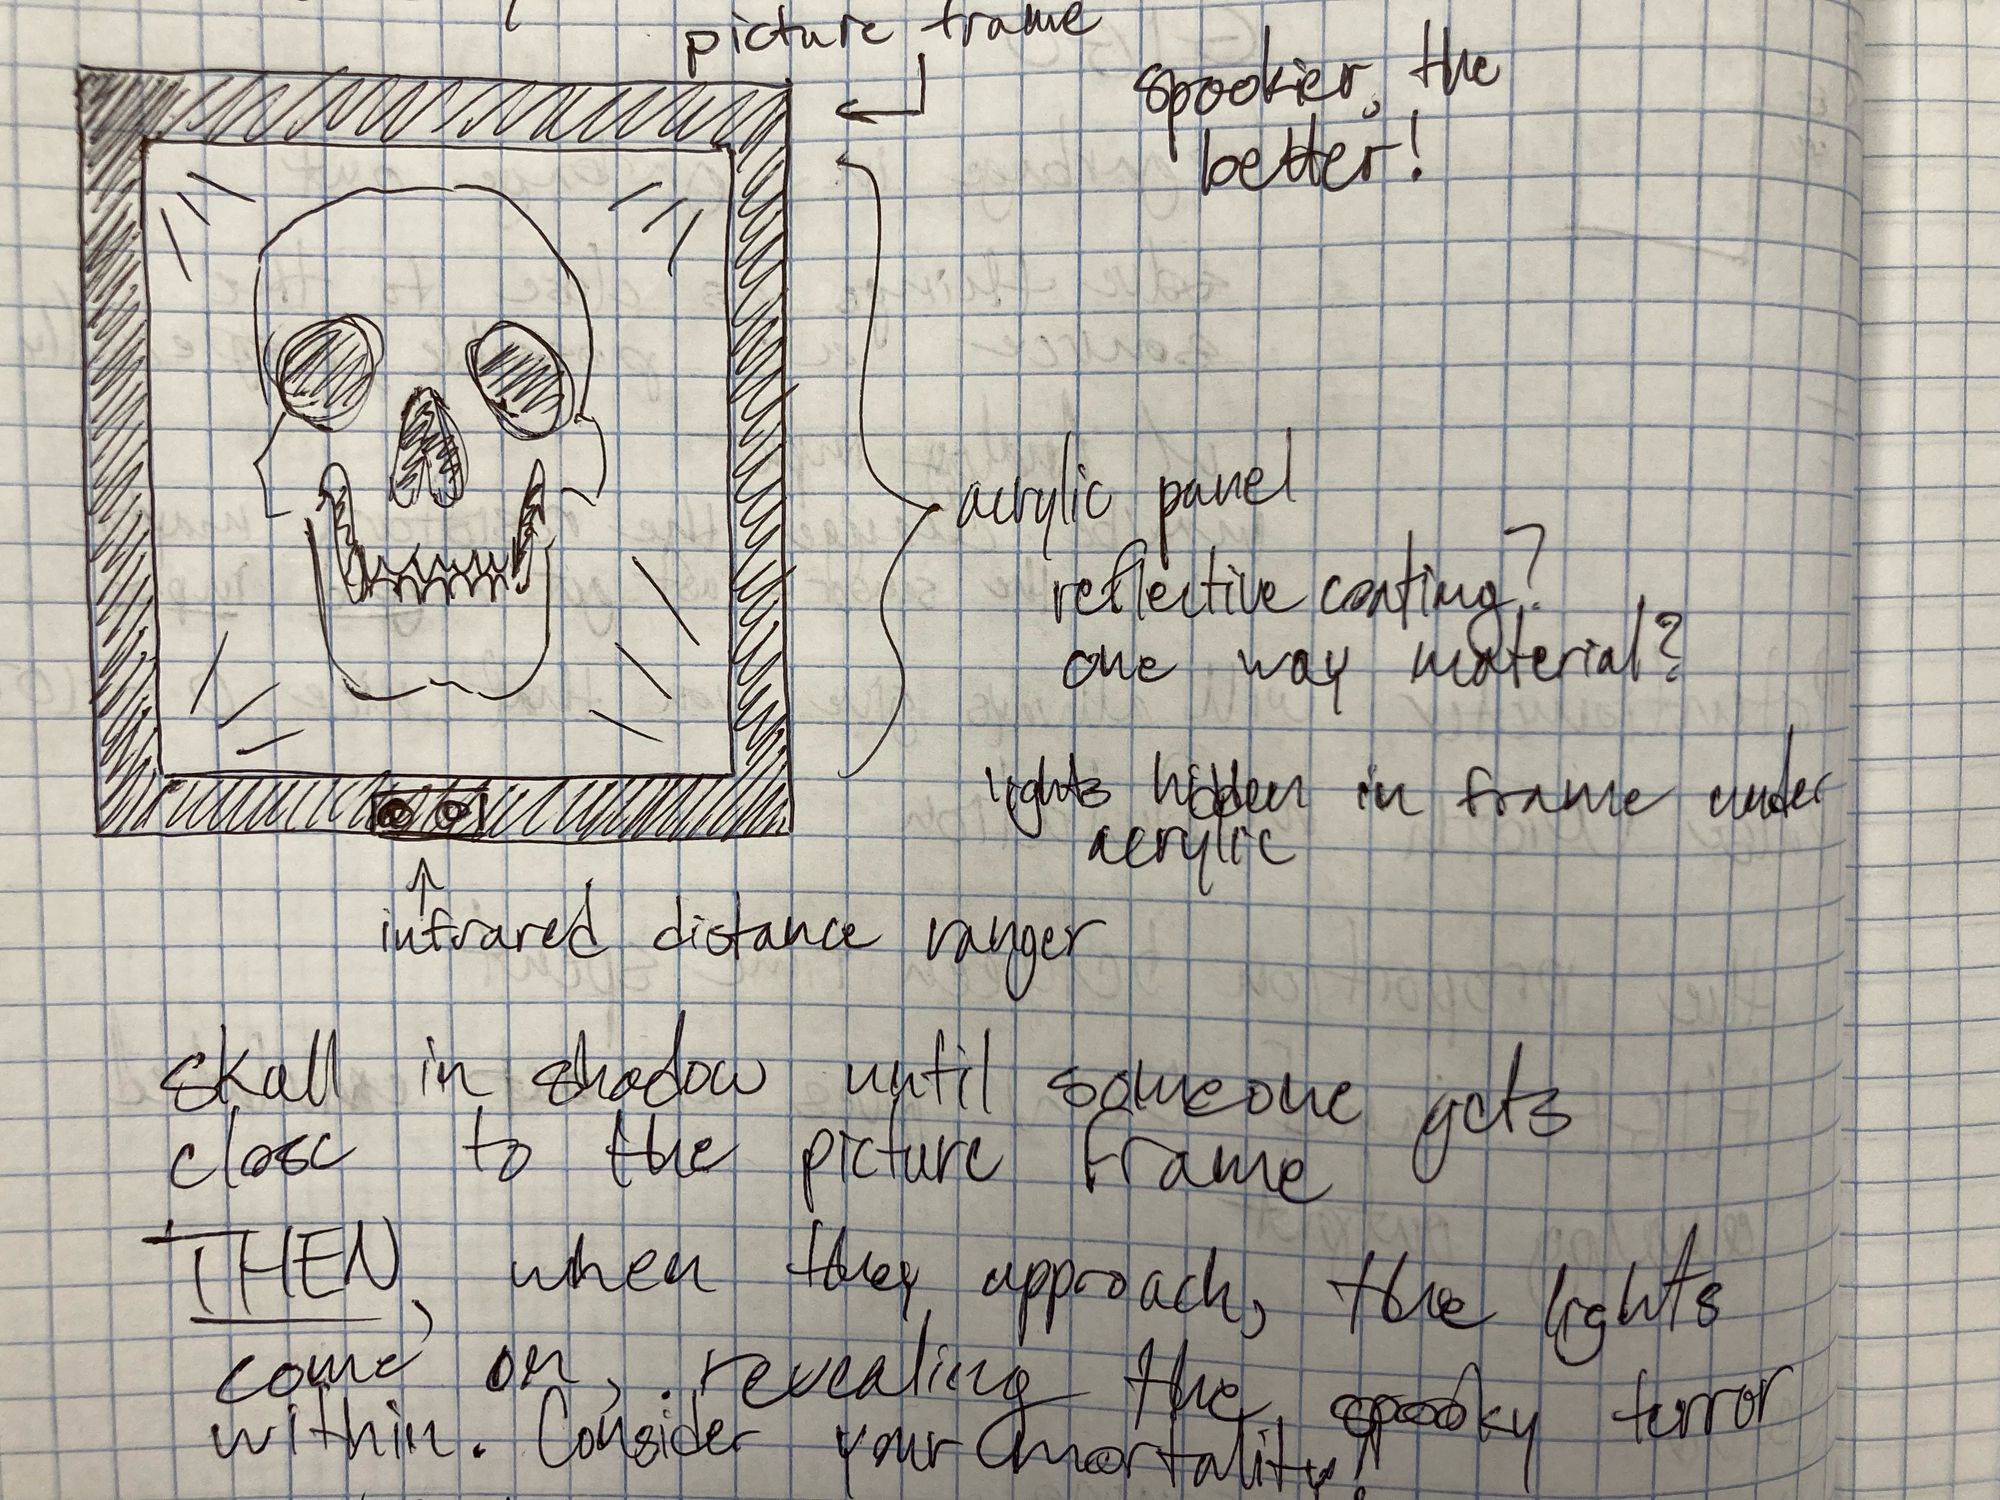 picture frame
spookier, the
better!
acrylic panel
reflective coating?
one way material?
lights hidden in frame under
acrylic
infrared distance ranger
skull in shadow until someone gets
close to the picture frame
THEN, when they approach, the lights
come on, revealing the spooky terror
within. Consider your mortality!